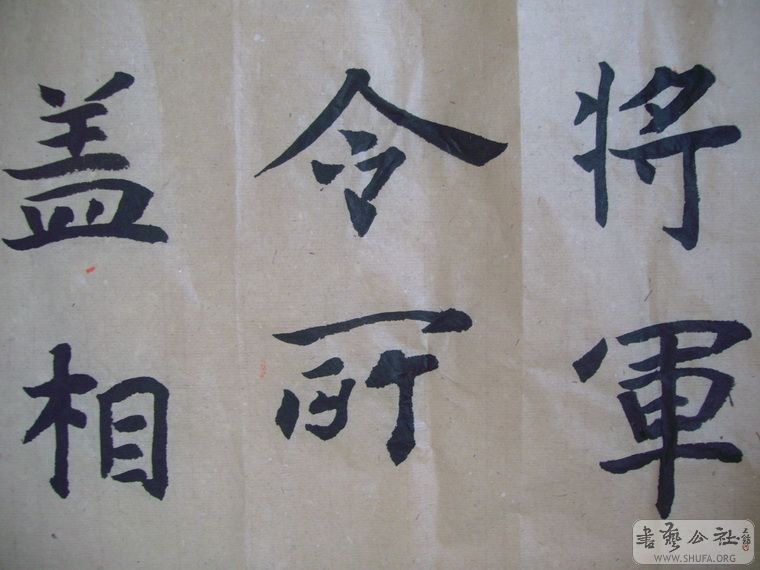 将軍
令所
盖相
書藝公社
WWW.SHUFA.ORG